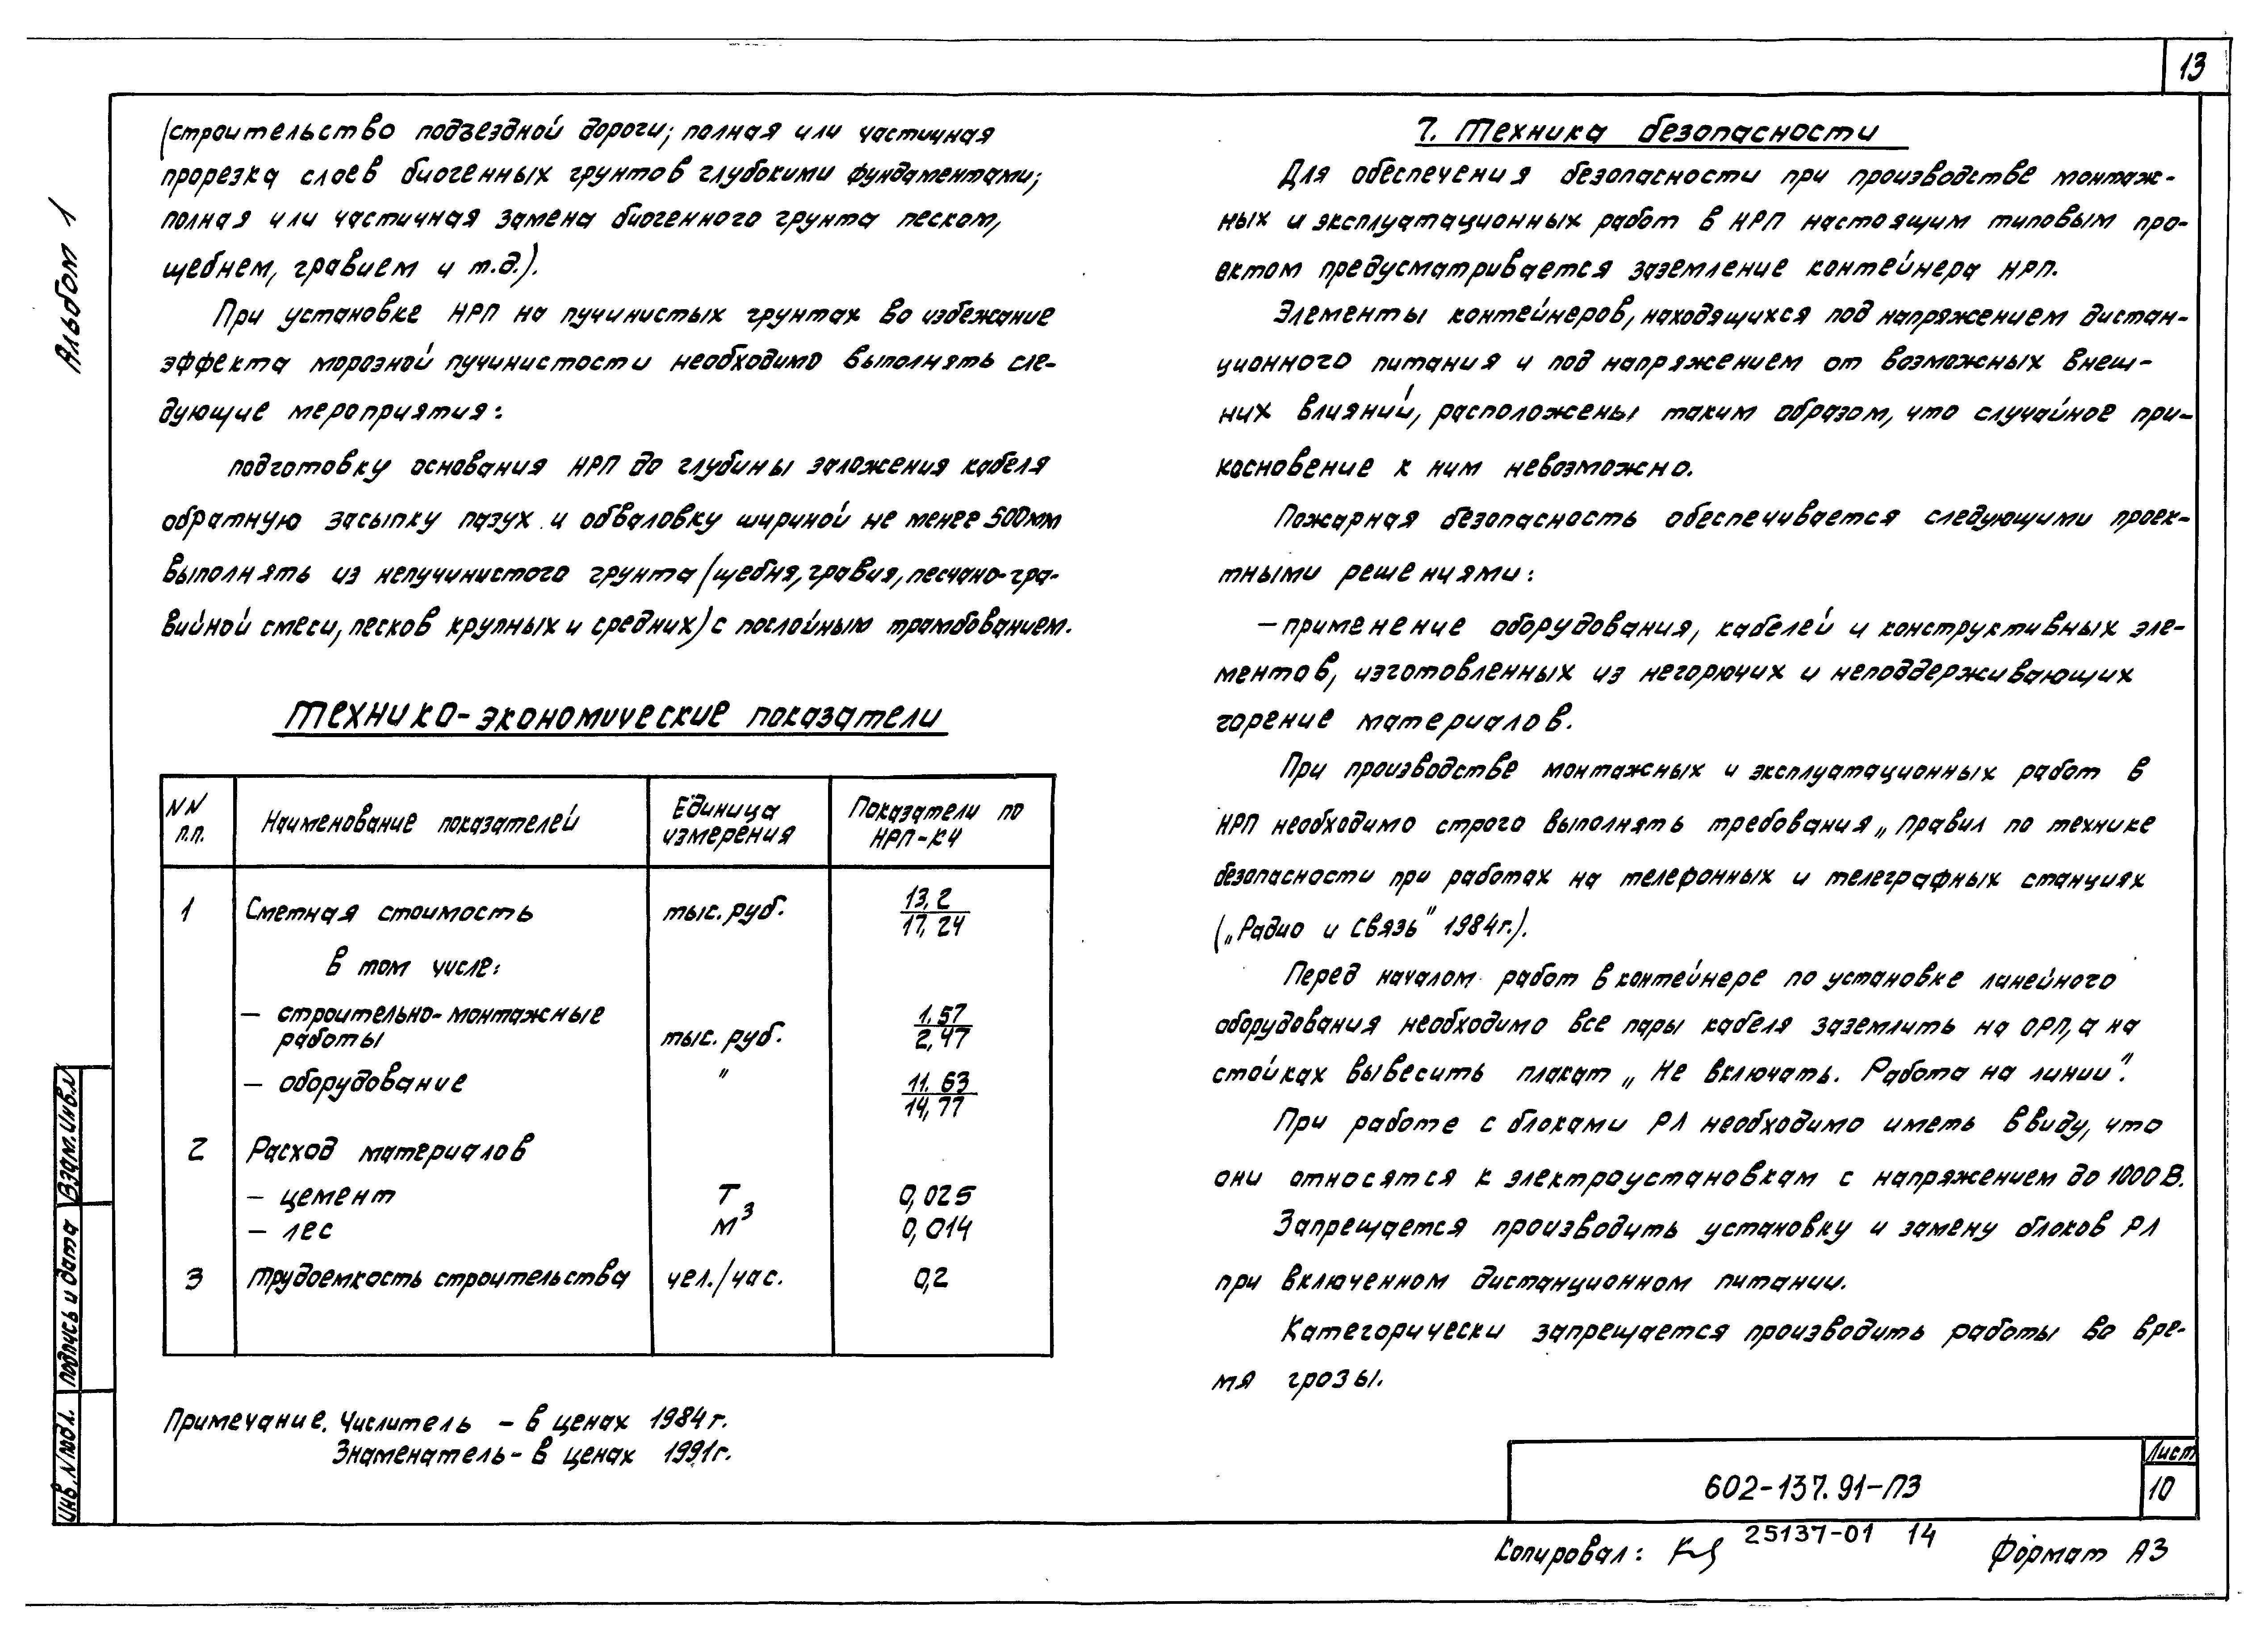 13
Альбом 1
(строительство подъездной дороги; полная или частичная
прорезка слоев биогенных грунтов глубокими фундаментами;
полная или частичная замена биогенного грунта песком,
щебнем, гравием и т.д.).
При установке НРП на пучинистых грунтах во избежание
эффекта морозной пучинистости необходимо выполнять сле-
дующие мероприятия:
подготовку основания НРП до глубины заложения кабеля
обратную засыпку пазух и обваловку шириной не менее 500мм
выполнять из непучинистого грунта (щебня, гравия, песчано-гра-
вийной смеси, песков крупных и средних) с послойным трамбованием.
Технико-экономические показатели
NN
п.п.
Наименование показателей
Единица
измерения
Показатели по
НРП-К4
1 Сметная стоимость тыс. руб. 13,2
17,24
в том числе:
– строительно-монтажные
работы тыс. руб. 1.57
2,47
– оборудование " 11.63
14,77
2 Расход материалов
– цемент Т 0,025
– лес М³ 0,014
3 Трудоемкость строительства чел./час. 0,2
Примечание. Числитель – в ценах 1984г.
Знаменатель – в ценах 1991г.
7. Техника безопасности
Для обеспечения безопасности при производстве монтаж-
ных и эксплуатационных работ в НРП настоящим типовым про-
ектом предусматривается заземление контейнера НРП.
Элементы контейнеров, находящихся под напряжением дистан-
ционного питания и под напряжением от возможных внеш-
них влияний, расположены таким образом, что случайное при-
косновение к ним невозможно.
Пожарная безопасность обеспечивается следующими проек-
тными решениями:
– применение оборудования, кабелей и конструктивных эле-
ментов, изготовленных из негорючих и неподдерживающих
горение материалов.
При производстве монтажных и эксплуатационных работ в
НРП необходимо строго выполнять требования „Правил по технике
безопасности при работах на телефонных и телеграфных станциях
(„Радио и связь" 1984г.).
Перед началом работ в контейнере по установке линейного
оборудования необходимо все пары кабеля заземлить на ОРП, а на
стойках вывесить плакат „Не включать. Работа на линии".
При работе с блоками РЛ необходимо иметь ввиду, что
они относятся к электроустановкам с напряжением до 1000В.
Запрещается производить установку и замену блоков РЛ
при включенном дистанционном питании.
Категорически запрещается производить работы во вре-
мя грозы.
Взам.инв.№
Подпись и дата
Инв.№подл.
602-137.91-ПЗ
Лист
10
Копировал: 25137-01 14 Формат А3